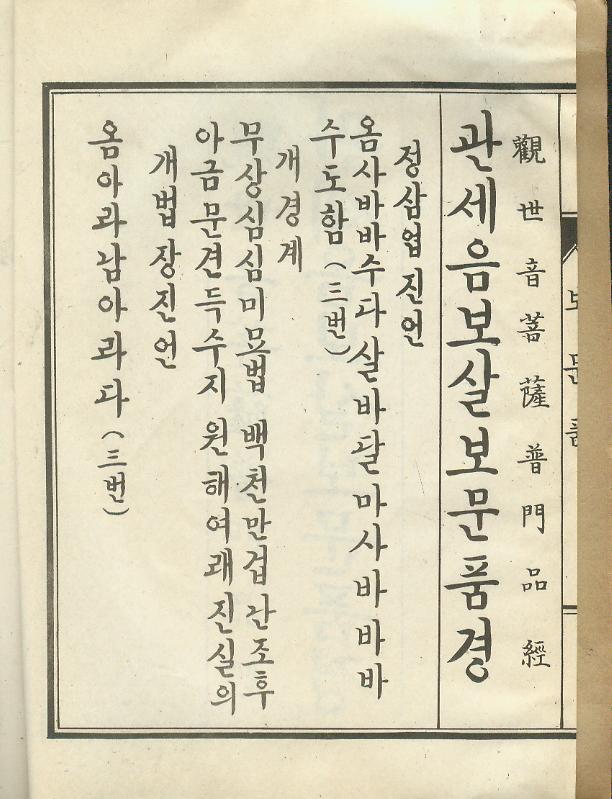 보문품
觀世音菩薩普門品經
관세음보살보문품경
정삼업진언
옴사바바수다살바달마사바바바
수도함(三번)
개경계
무상심심미묘법 백천만겁난조후
아금문견득수지 원해여래진실의
개법장진언
옴아라남아라다(三번)